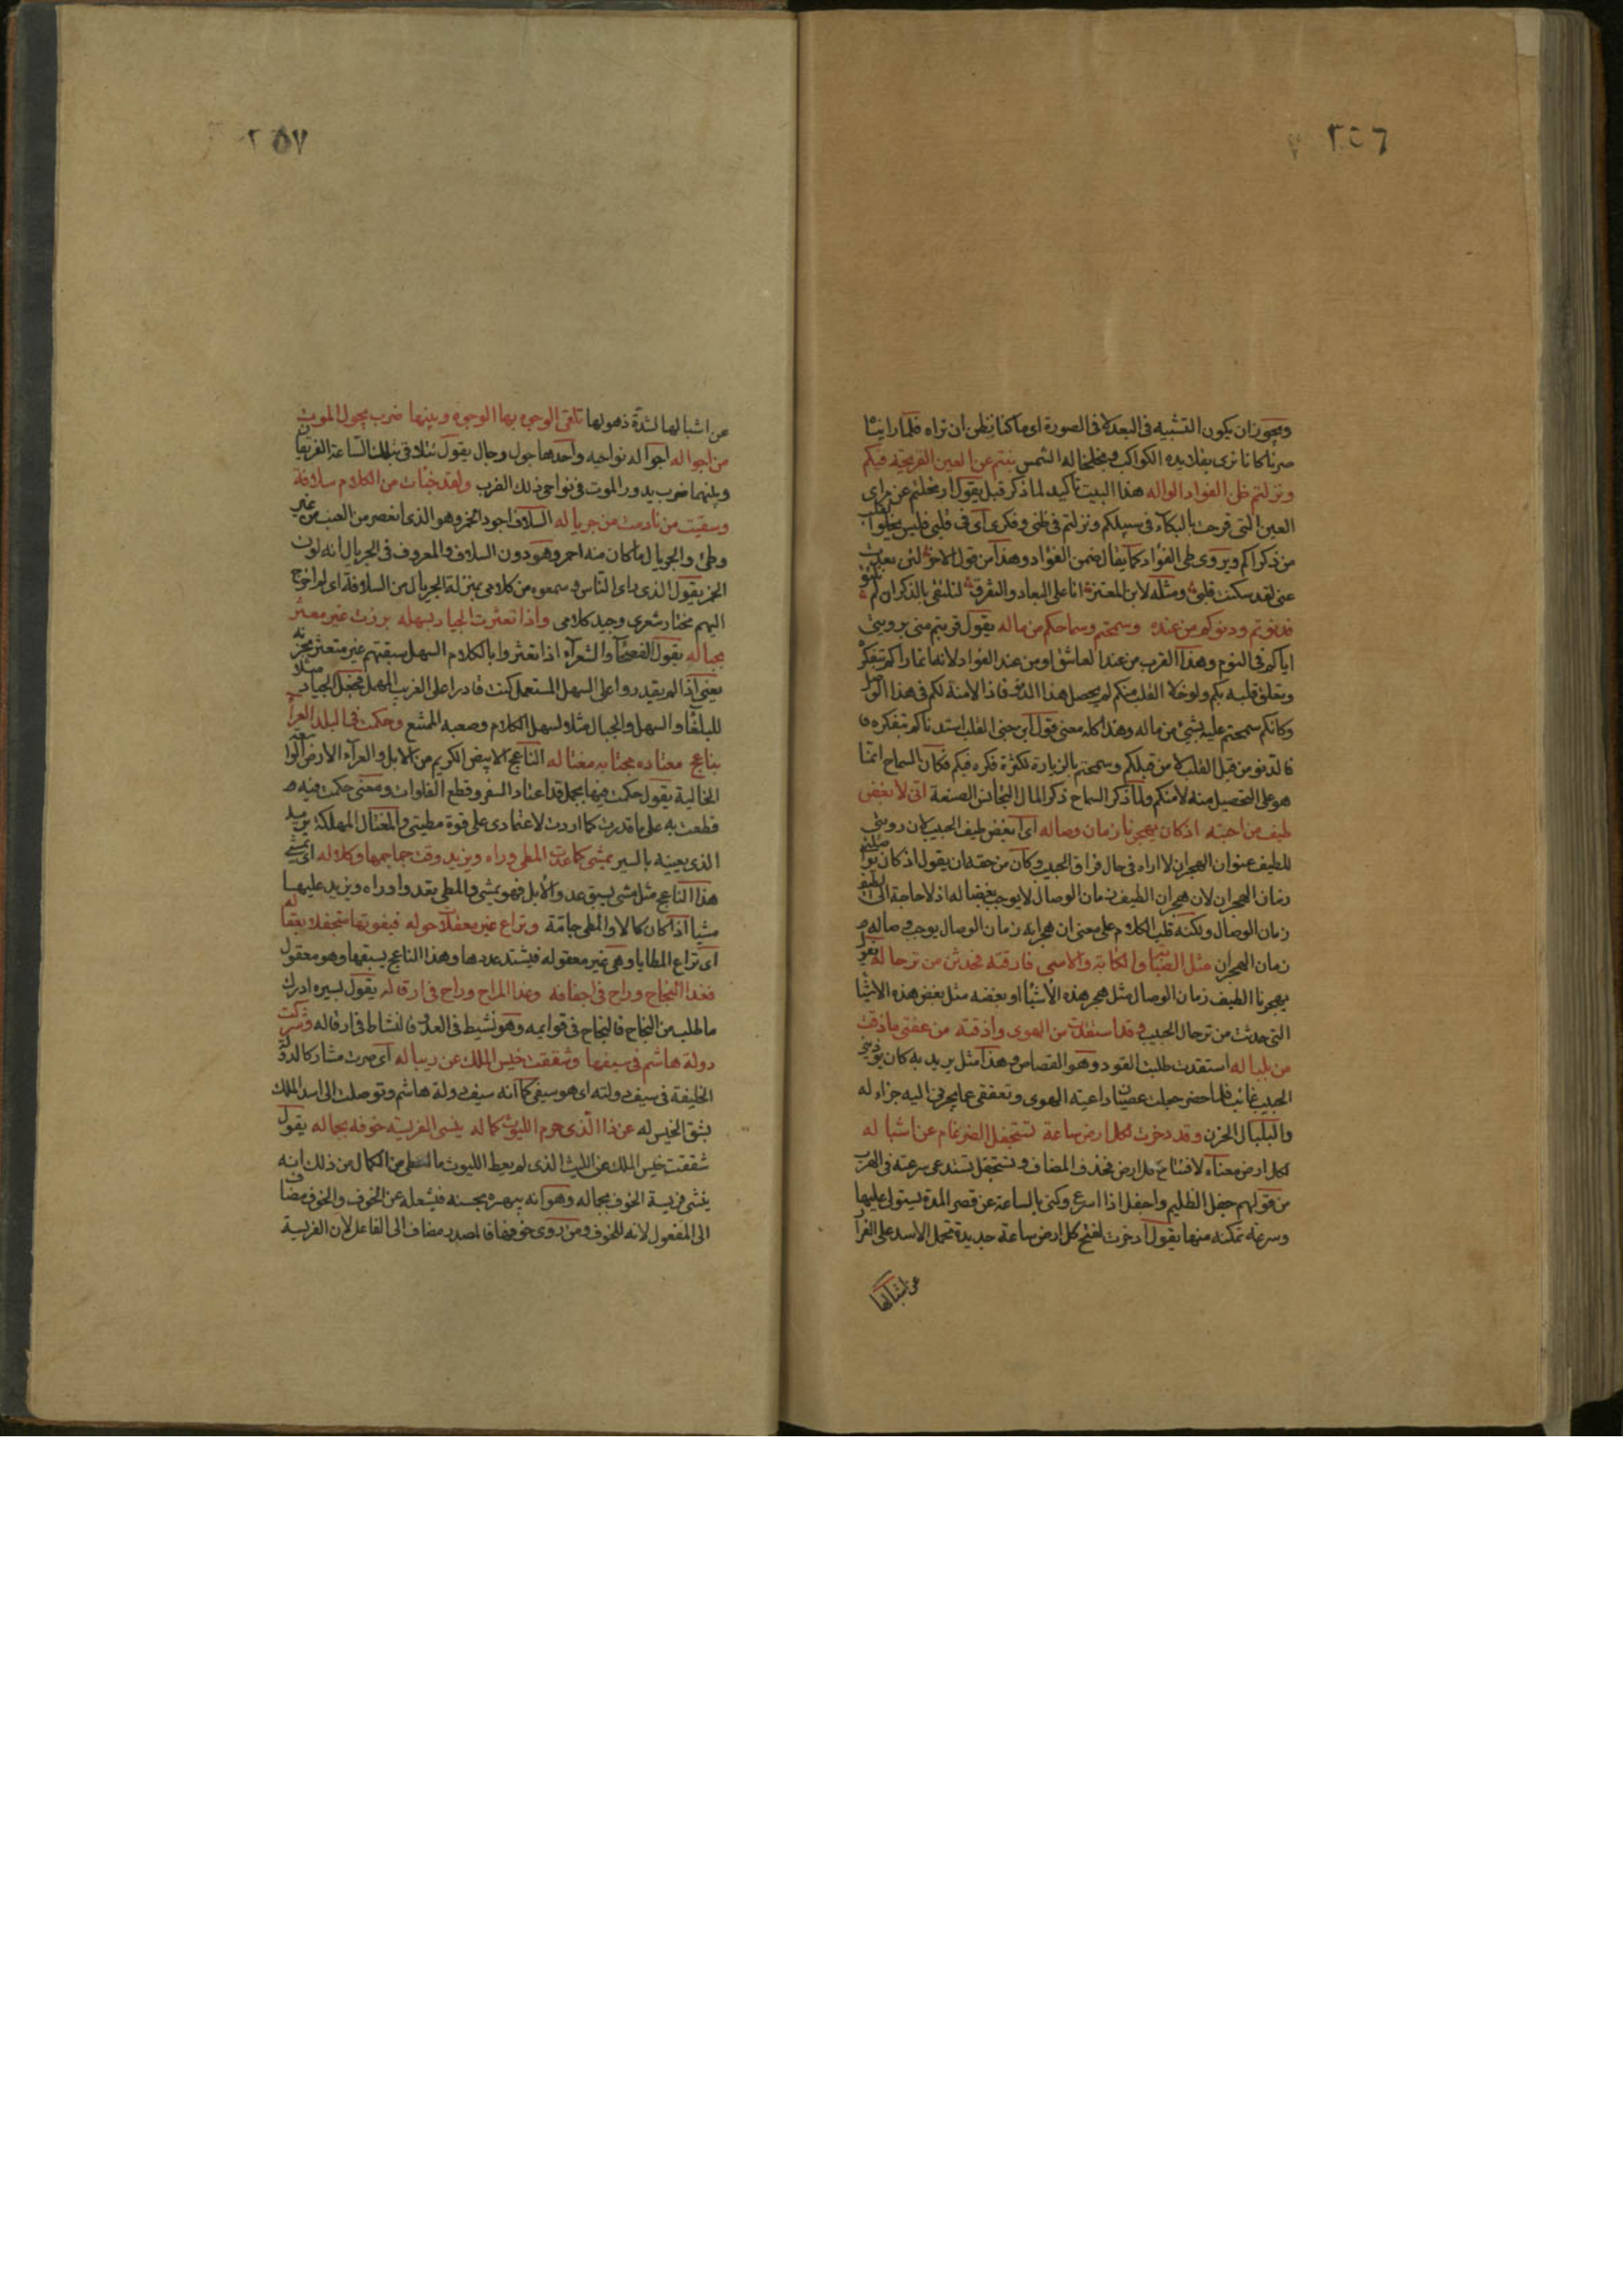 ٢٥٦
ويجوز ان يكون التشبيه فى البعد لا فى الصورة اى ما كنا نظن ان نراه فلما راينا
صرنا كانا نرى بقلاديده الكواكب وبخلخاله الشمس بنتم عن العين القريحة فيكم
ونزلتم ظن الفواد الواله هذا البيت تأكيد لما ذكر قبل يقول ارتحلتم عن مراى
العين التى قرحت بالبكاء فى سبيلكم ونزلتم فى ظنى وفكرى اى فى قلبى فليس يخلو القلب
من ذكراكم ويروى طى الفواد كما يقال ضمن الفواد وهذا من قول الاخر لئن بعدت
عنى لقد سكنت قلبى ومثله لابن المعتز انا على البعاد والتفرق لنلتقى بالذكر ان لم نلتق
فدنوتم ودنوكم من عنده وسمحتم وسماحكم من ماله يقول قربتم منى برويتى
اياكم فى النوم وهذا القرب من عند العاشق او من عند الفواد لانه انما راكم بتفكره
وتعلق قلبه بكم ولو خلا القلب منكم لم يحصل هذا الدنو فاذا لا منة لكم فى هذا الوصل
وكانكم سمحتم عليه بشىء من ماله وهذا كله معنى قول ابن جنى القلب استدناكم بتفكره
فالدنو من قبل القلب لا من قبلكم وسمحتم بالزيارة لكثرة فكره فيكم فكان السماح انما
هو على التحصيل منه لا منكم ولما ذكر السماح ذكر المال لتجانس الصنعة انى لابغض
طيف من احببته اذ كان يهجرنا زمان وصاله اى ابغض طيف الحبيب لان رويتى
للطيف عنوان الهجران لا اراه فى حال فراق الحبيب وكان من حقه ان يقول اذ كان يواصلنا
زمان الهجران لان هجران الطيف زمان الوصال لا يوجب بغضا له اذ لا حاجة الى الطيف
زمان الوصال ولكنه قلب الكلام على معنى ان هجرانه زمان الوصال يوجب وصاله
زمان الهجران مثل الصبابة والكابة والاسى فارقته فحدثن من ترحاله يقول
يهجرنا الطيف زمان الوصال مثل هجر هذه الاشيا او بغضه مثل بغض هذه الاشيا
التى حدثت من ترحال الحبيب وقد استقدت من الهوى واذقته من عفتى ما ذقت
من بلباله استقدت طلبت القود وهو القصاص وهذا مثل يريد به كان يوذينى
الحبيب غائبا فلما حضر جعلت عصيانا داعية الهوى وتعففى عما يجرنى اليه جزاء له
والبلبال الحزن وقد ذخرت لكل ارض ساعة تستجفل الضرغام عن اشباله
لكل ارض معناه لافتتاح كل ارض فحذف المضاف وتستجفل تستدعى سرعته فى الهرب
من قولهم جفل الظليم واجفل اذا اسرع وكنى بالساعة عن قصر المدة يستولى عليها
وسرعة تمكنه منها يقول ادخرت لفتح كل ارض ساعة جديدة تحمل الاسد على الفرار
عن اشبالها
٢٥٧
عن اشبالها لشدة ذهولها تلقى الوجوه بها الوجوه وبينها ضرب يجول الموت
من اجواله اجواله نواحيه واحدها جول وجال يقول تتلاقى بتلك الساعة الفريقان
وبينهما ضرب يدور الموت فى نواحى ذلك الضرب ولقد خبأت من الكلام سلافة
وسقيت من نادمت من جرياله السلاف اجود الخمر وهو الذى انعصر من العنب من غير
وطئ والجريال ما كان منه احمر وهو دون السلاف والمعروف فى الجريال انه لون
الخمر يقول الذى راى الناس وسمعوه من كلامى بمنزلة الجريال من السلافة اى لم اخرج
اليهم مختار شعرى وجيد كلامى واذا تعثرت الجياد بسهله برزت غير معثر
بجباله يقول الفصحآ والشعرآ اذا تعثروا بالكلام السهل سبقتهم غير متعثر بحزنه
يعنى اذا لم يقدروا على السهل المستعمل كنت قادرا على الغريب المهمل فجعل الجياد مثلا
للبلغآ والسهل والجبال مثلا لسهل الكلام وصعبه الممتنع وحكمت فى البلد العرا
بناعج معتاده مجتابه مغتاله الناعج الابيض الكريم من الابل والعراء الارض الواسعة
الخالية يقول حكمت فيها بجمل قد اعتاد السفر وقطع الفلوات ومعنى حكمت فيه
قطعت به على ما قدرت كما اردت لاعتمادى على قوة مطيتى والمغتال المهلك يريد
الذى يعينه بالسير يمشى كما عدت المطى وراه ويزيد وقت جمامها وكلاله اى يمشى
هذا الناعج مثل مشى يسبق عدو الابل فهو يمشى والمطى يعدو وراه ويزيد عليها
مشيا اذا كان كالا والمطى جامة وتراع غير معقلات حوله فيفوتها متجفلا بعقاله
اى تراع المطايا وهى غير معقوله فيشتد عدوها وهذا الناعج يسبقها وهو معقول
فغدا النجاح وراح فى اخفافه وغدا المراح وراح فى ارقاله يقول بسيره ادرك
ما طلب من النجاح فالنجاح فى قوايمه وهو نشيط فى العدو فالنشاط فى ارقاله وشركت
دولة هاشم فى سيفها وشققت خيس الملك عن ريباله اى صرت مشاركا لدولة
الخليفة فى سيف دولته اى هو سيفى كما انه سيف دولة هاشم وتوصلت الى اسد الملك
بشق الخيس له عن ذا الذى حرم الليوث كماله ينسى الفريسة خوفه بجماله يقول
شققت خيس الملك عن الليث الذى لم يعط الليوث ما اعطى من الكمال من ذلك انه
ينسى فريسة الخوف بجماله وهو انه يبهره بحسنه فيشغله عن الخوف والخوف مضاف
الى المفعول لانه للمخوف ومن روى خوفها فالمصدر مضاف الى الفاعل لان الفريسة